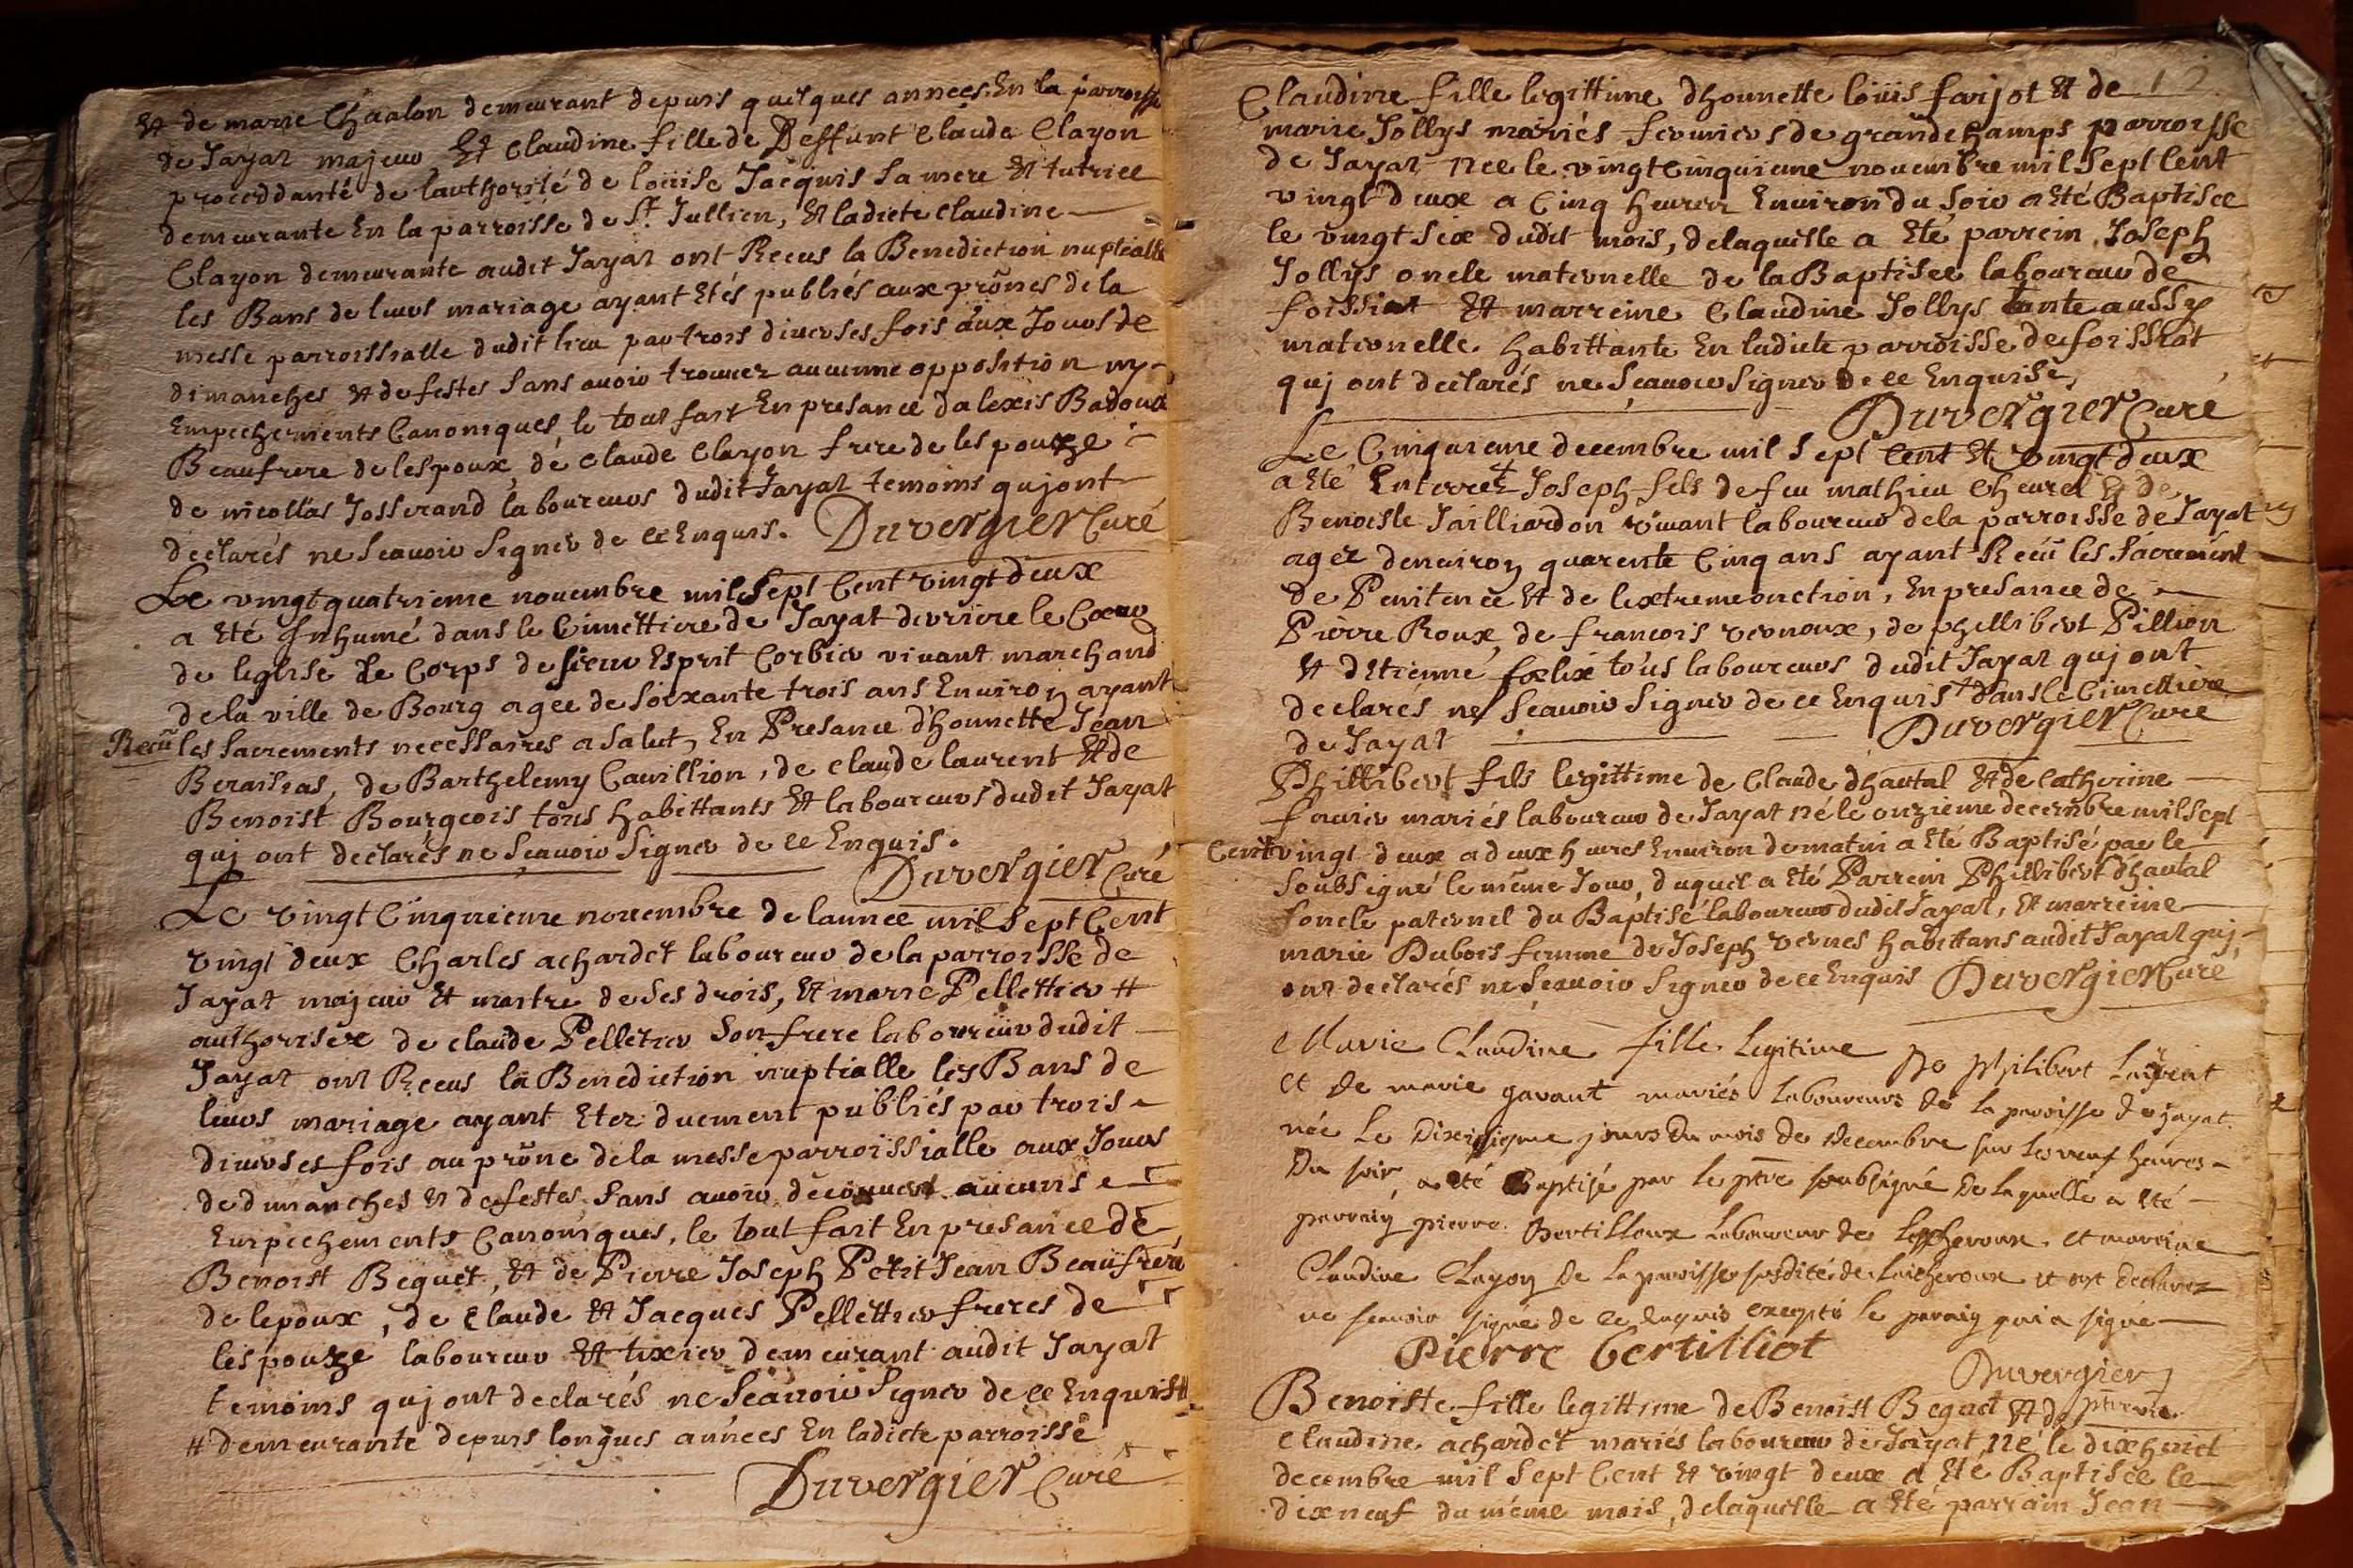 Et de marie Chaalon demeurant depuis quelques années En la parroisse
de Jayat majeur Et Claudine fille de Deffunt Claude Clayon
proceddante de lauthorité de loüise Jacquis sa mere Et tutrice
demeurante En la parroisse de St. Jullien, Et ladicte Claudine
Clayon demeurante audit Jayat ont Receus la Benediction nuptialle
les Bans de leurs mariage ayant Etés publiés aux prônes de la
messe parroissialle dudit lieu par trois diverses fois aux Jours de
dimanches Et de festes sans avoir trouvez aucunne opposition ny
Empechements Canoniques, le tout fait En presance dalexis Badoux
Beaufrere de lespoux, de Claude Clayon frere de lespouze
de nicollas Josserand laboureurs dudit Jayat temoins quj ont
declarés ne Scauoir Signer de ce Enquis. Duvergier Curé
Le vingt quatrieme nouembre mil Sept Cent vingt deux
a Eté Inhumé dans le Cimettiere de Jayat derriere le Cœur
de leglise le Corps de sieur Esprit Corbier vivant marchand
de la ville de Bourg agee de soixante trois ans Environ ayant
Receu les sacrements necessaires a Salut, En Presance d'honnette Jean
, de Barthelemy Cavillion, de Claude laurent Et de
Benoist Bourgeois tous habittants Et laboureurs dudit Jayat
quj ont declarés ne Sçauoir Signer de ce Enquis.
Duvergier Curé
Le vingt Cinquieme nouembre de lannee mil Sept Cent
vingt deux Charles achardet laboureur de la parroisse de
Jayat majeur Et maitre de Ses drois, Et marie Pellettier #
authorisee de Claude Pelletier Son frere laboureur dudit
Jayat ont Receus la Benediction nuptialle les Bans de
leurs mariage ayant Etez duement publiés par trois
diverses fois au prône de la messe parroissialle aux Jours
de dimanches Et de festes Sans auoir découuert aucuns
Empechements Canoniques, le tout fait En presance de
Benoist Beguet, Et de Pierre Joseph Petit Jean Beaufrere
de lepoux, de Claude Et Jacques Pellettier freres de
lespouze laboureur Et tixier demeurant audit Jayat
temoins quj ont declarés ne Scauoir Signer de ce Enquis #
# demeurante depuis longues années En ladicte parroisse
Duvergier Curé
Claudine fille legittime dhonnette loüis farjot Et de
marie Jollys mariés fermiers de grandchamps parroisse
de Jayat née le vingt Cinquieme nouembre mil Sept Cent
vingt deux a Cinq heures Environ du Soir a Eté Baptisee
le vingt Six dudit mois, delaquelle a Eté parrein Joseph
Jollys oncle maternelle de la Baptisee laboureur de
foissiat Et marreine Claudine Jollys tante aussy
maternelle habittante En ladicte parroisse de foissiat
quj ont declarés ne Sçauoir Signer de ce Enquise
Duvergier Curé
Le Cinquieme decembre mil Sept Cent Et vingt deux
a Eté Enterret + Joseph fils de feu mathieu Cheurel Et de
Benoiste Jailliardon vivant laboureur de la parroisse de Jayat
agez denviron quarente Cinq ans ayant Receü les Sacrement
de Penitence Et de lextremeonction, En presance de
Pierre Roux, de francois vernoux, de phillibert Pillion
Et dEtienne fœlix tous laboureurs dudit Jayat quj ont
declarés ne Scauoir Signer de ce Enquis + dans le Cimettiere
de Jayat Duvergier Curé
Phillibert fils legittime de Claude dhautal Et de Catherine
mariés laboureur de Jayat né le onzieme decembre mil Sept
Cent vingt deux a deux heures Environ de matin a Eté Baptisé par le
Soubsigné le même Jour, duquel a Eté Parrein Phillibert dhautal
son oncle paternel du Baptisé laboureur dudit Jayat, Et marreine
marie Dubois femme de Joseph vernes habittans audit Jayat quj
ont declarés ne Scauoir Signer de ce Enquis Duvergier Curé
Marie Claudine fille legitime de philibert Laurent
et de marie gavant mariés laboureurs de la paroisse de jayat
née le jours du mois de decembre sur les neuf heures
du soir, a été Baptisé par le ptre soubsigné de laquelle a été
parrain pierre Bertilloux laboureur de et marraine
Claudine Clayon de la paroisse susdite de et ont declarez
ne scavoir signé de ce Enquis excepté le parain qui a signé
Pierre bertilliot
Duvergier
ptre
Benoiste fille legittime de Benoist Beguet Et de
Claudine achardet mariés laboureur de Jayat, né le dixhuict
decembre mil Sept Cent Et vingt deux a Eté Baptisée le
dixneuf du même mois, delaquelle a Eté parrain Jean